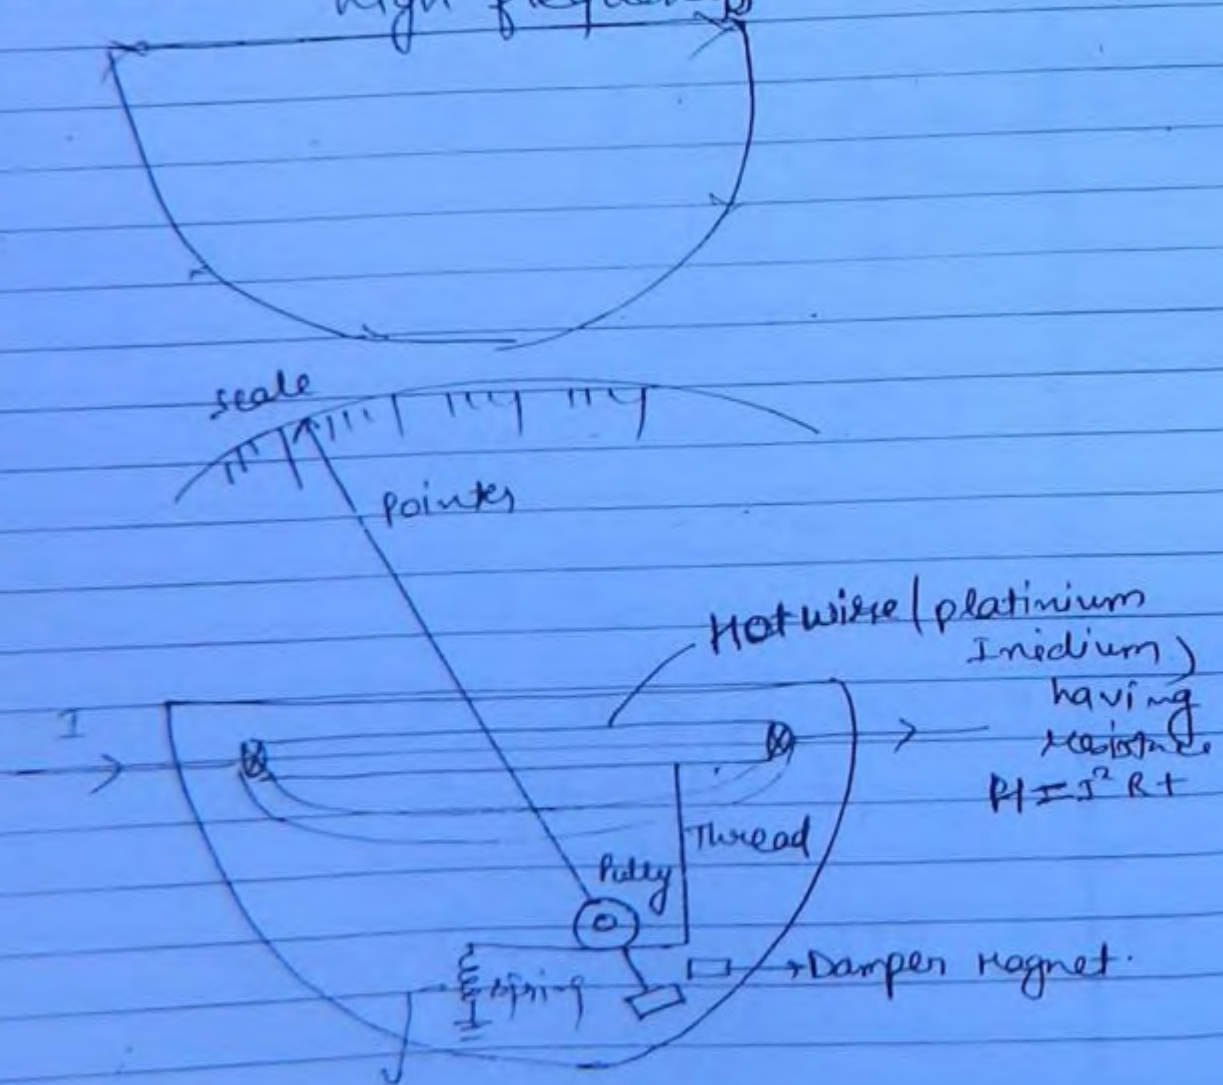 high frequency
scale
pointer
Hot wire (platinium
Iridium)
having
I
resistance
H = I² R t
Thread
Pully
Damper Magnet.
spring